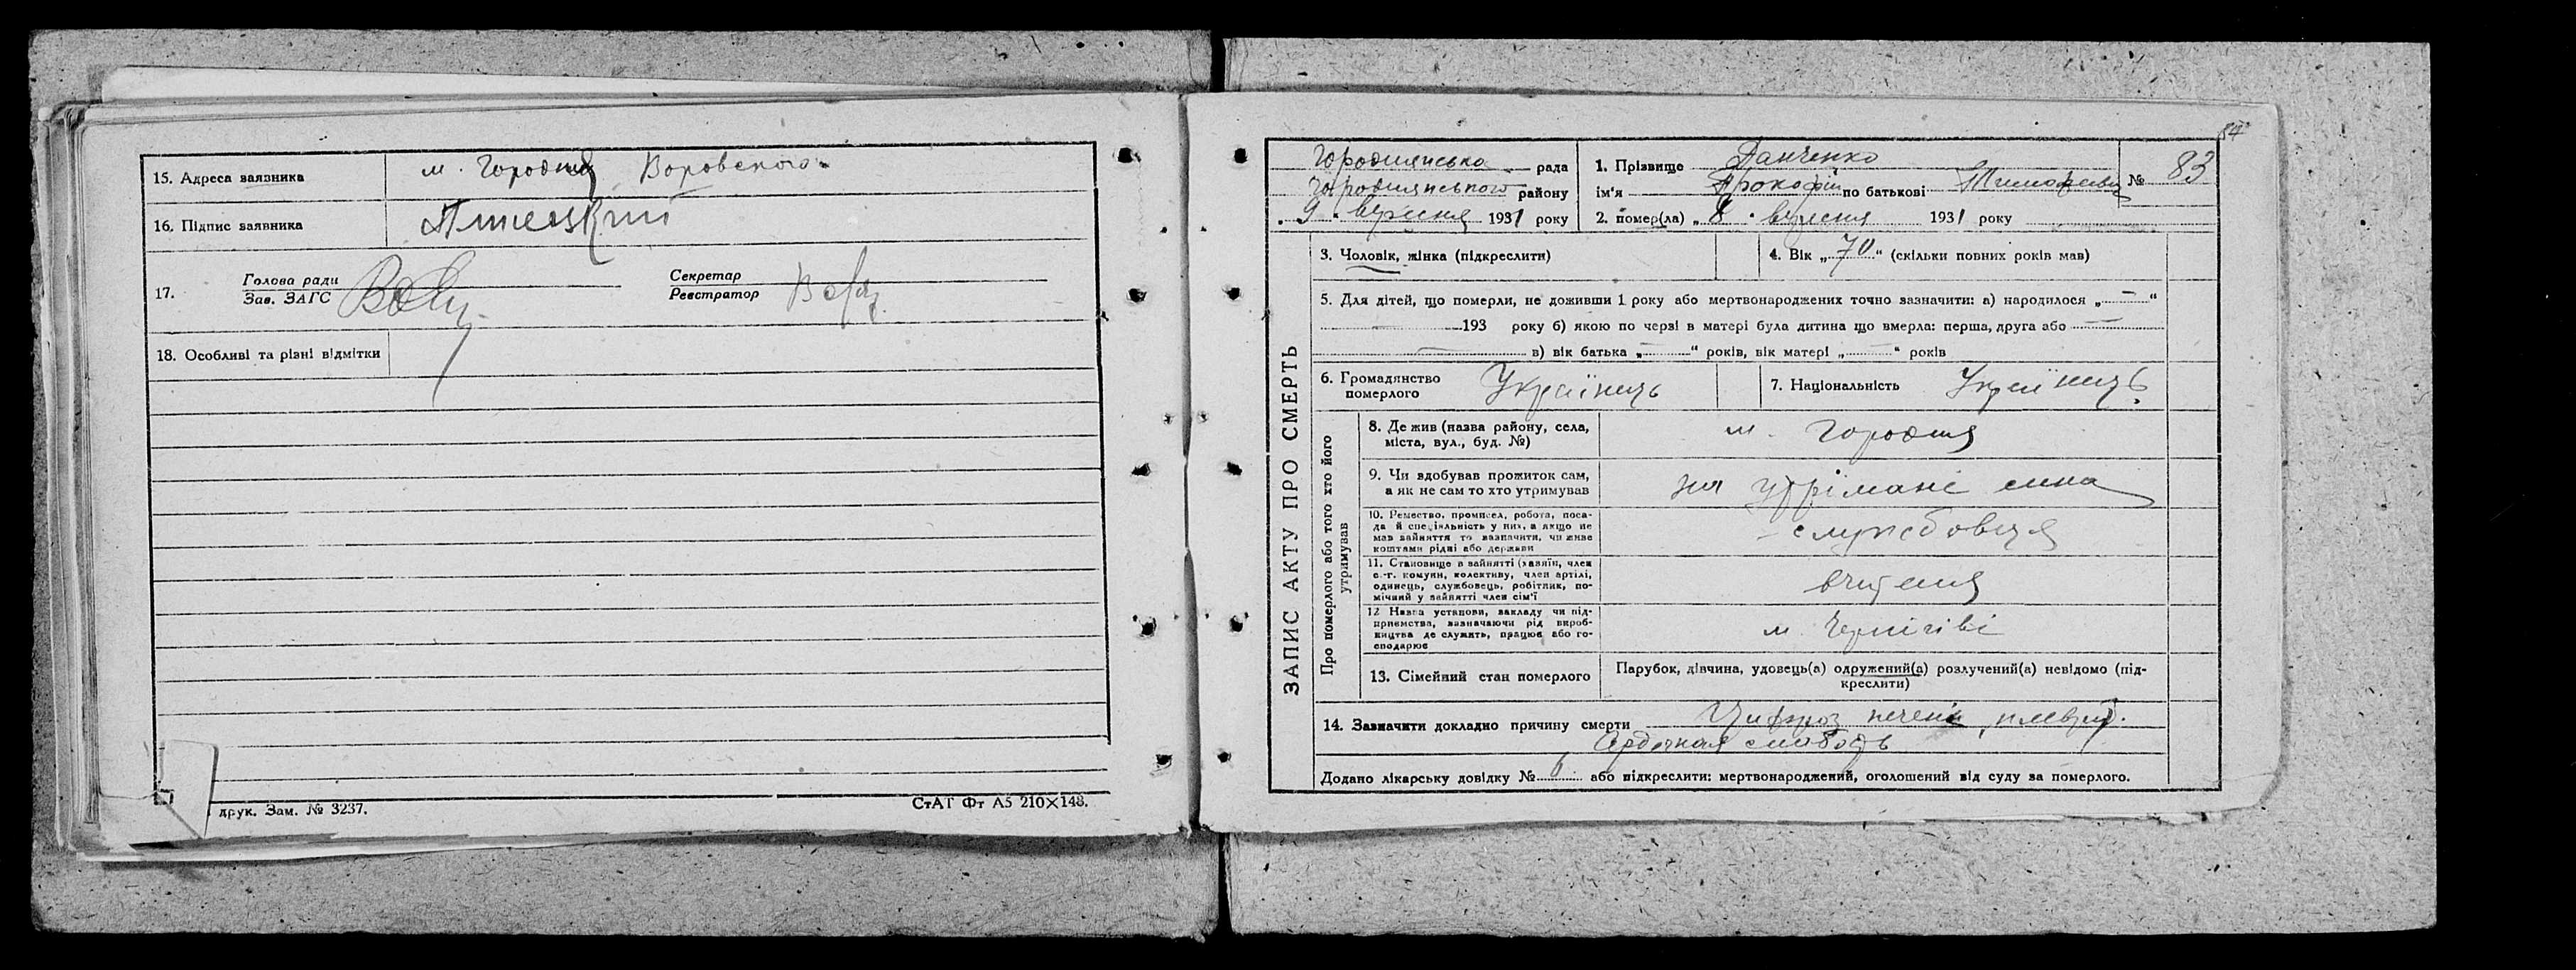 15. Адреса заявника м. Городня Воровского
16. Підпис заявника
17. Голова ради
Зав. ЗАГС
Секретар
Реєстратор
18. Особливі та різні відмітки
друк. Зам. № 3237.
СтАТ Фт А5 210×148.
84
ЗАПИС АКТУ ПРО СМЕРТЬ
Городнянська рада
Городнянського району
„ 9 „ вересня 1931 року
1. Прізвище Данченко
ім'я Прокофій по батькові Тимофеевич № 83
2. помер(ла) „ 8 „ вересня 1931 року
3. Чоловік, жінка (підкреслити)
4. Вік „ 70 “ (скільки повних років мав)
5. Для дітей, що померли, не доживши 1 року або мертвонароджених точно зазначити: а) народилося „ — “
— 193 року б) якою по черзі в матері була дитина що вмерла: перша, друга або —
— в) вік батька „ — “ років, вік матері „ — “ років
6. Громадянство
померлого Українець
7. Національність Українець
Про померлого або того хто його
утримував
8. Де жив (назва району, села,
міста, вул., буд. №) м. Городня
9. Чи здобував прожиток сам,
а як не сам то хто утримував на утрімані сина
10. Ремество, промисел, робота, поса-
да й спеціяльність у них, а якщо не
мав зайняття то зазначити, чи живе
коштами рідні або держави службовця
11. Становище в зайнятті (хазяїн, член
с.-г. комуни, колективу, член артілі,
одинець, службовець, робітник, по-
мічний у зайнятті член сім'ї
12 Назва установи, закладу чи під-
приємства, зазначаючи рід вироб-
ництва де служить, працює або го-
сподарює м. Чернігіві
13. Сімейний стан померлого Парубок, дівчина, удовець(а) одружений(а) розлучений(а) невідомо (під-
креслити)
14. Зазначити докладно причину смерти Цирроз печени, плеврит.
Сердечная слабость
Додано лікарську довідку № 6 або підкреслити: мертвонароджений, оголошений від суду за померлого.